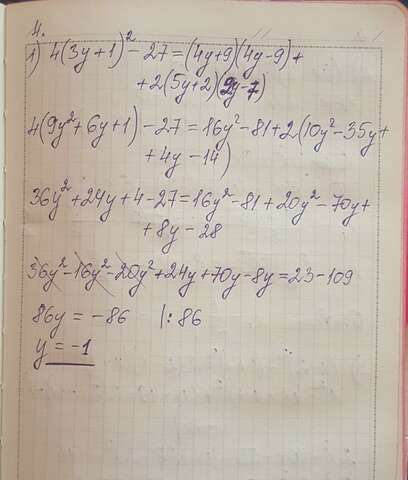 4.
1) 4(3y+1)² - 27 = (4y+9)(4y-9) +
+ 2(5y+2)(2y-7)
4(9y²+6y+1) - 27 = 16y² - 81 + 2(10y² - 35y +
+ 4y - 14)
36y² + 24y + 4 - 27 = 16y² - 81 + 20y² - 70y +
+ 8y - 28
36y² - 16y² - 20y² + 24y + 70y - 8y = 23 - 109
86y = -86 |: 86
y = -1